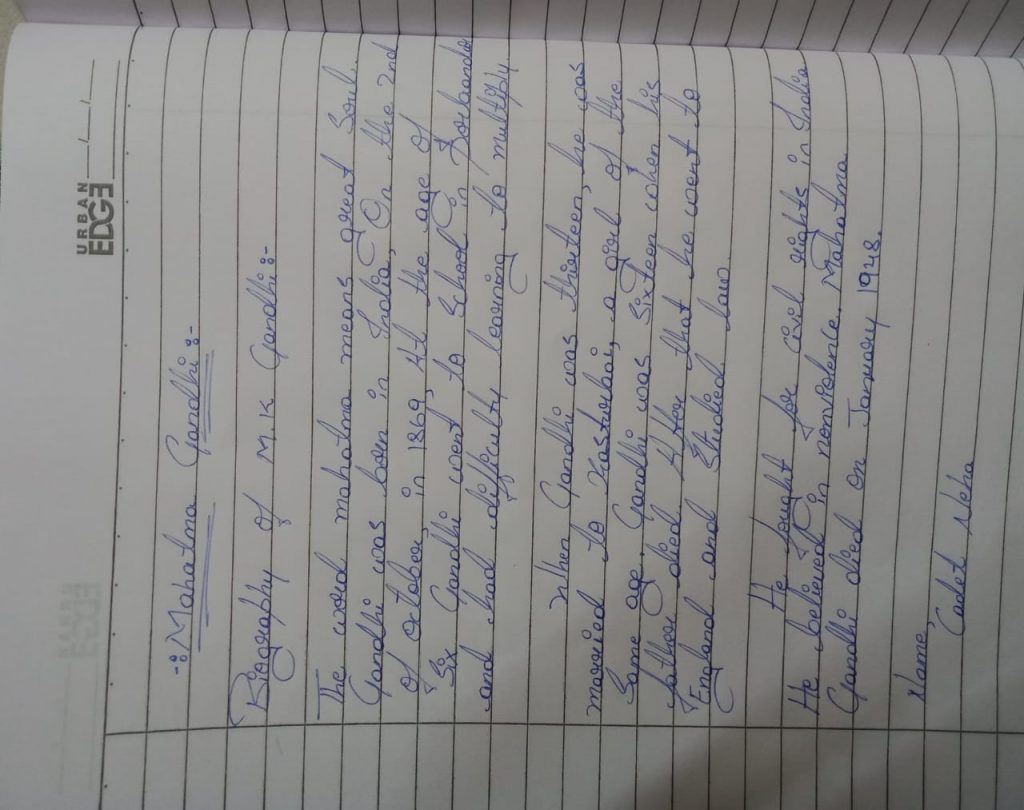 URBAN
EDGE
-:Mahatma Gandhi:-
Biography of M.K Gandhi:-
The word mahatma means great Soul.
Gandhi was born in India, On the 2nd
of october, in 1869, At the age of
Six Gandhi went to School in Porbandar
and had difficulty learning to multiply
When Gandhi was thirteen, he was
married to Kasturbai, a girl of the
Same age. Gandhi was Sixteen when his
father died. After that he went to
England and Studied law.
He fought for civil rights in India
He believed in nonviolence. Mahatma
Gandhi died on January 1948.
Name,
Cadet Neha